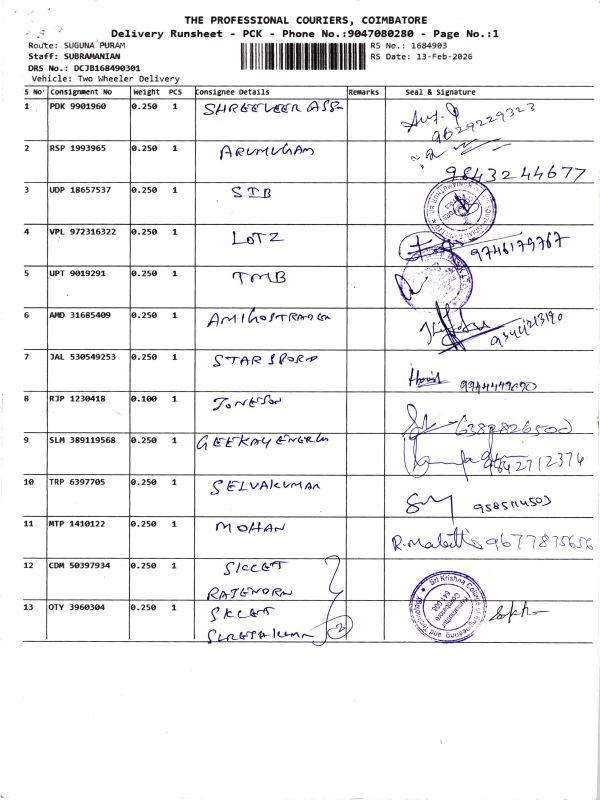 THE PROFESSIONAL COURIERS, COIMBATORE
Delivery Runsheet - PCK - Phone No.:9047080280 - Page No.:1
Route: SUGUNA PURAM RS No.: 1684903
Staff: SUBRAMANIAN RS Date: 13-Feb-2026
DRS No.: DCJB168490301
Vehicle: Two Wheeler Delivery
S No Consignment No Weight PCS Consignee Details Remarks Seal & Signature
1 PDK 9901960 0.250 1 SHREEVEER ASS
9629229323
2 RSP 1993965 0.250 1 ARUMUGAM
9843244677
3 UDP 18657537 0.250 1 SIB
4 VPL 972316322 0.250 1 LOTZ 9746179767
5 UPT 9019291 0.250 1 TMB
6 AMD 31685409 0.250 1 9344213190
7 JAL 530549253 0.250 1 STAR SPORD
9944449690
8 RJP 1230418 0.100 1 6382826500
9 SLM 389119568 0.250 1 GEEKAY ENERGY
9842712374
10 TRP 6397705 0.250 1 SELVAKUMAR
9585114503
11 MTP 1410122 0.250 1 MOHAN
9677875656
12 CDM 50397934 0.250 1
13 OTY 3960304 0.250 1 SKCET
2
Sri Krishna College of Engineering and Technology
Kuniamuthur
Coimbatore
641 008